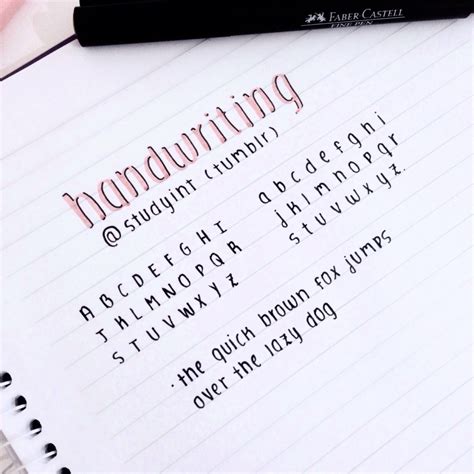 FABER CASTELL
FINE PEN
handwriting
@studyint (tumblr)
A B C D E F G H I
J K L M N O P Q R
S T U V W X Y Z
a b c d e f g h i
j k l m n o p q r
s t u v w x y z.
· the quick brown fox jumps
over the lazy dog